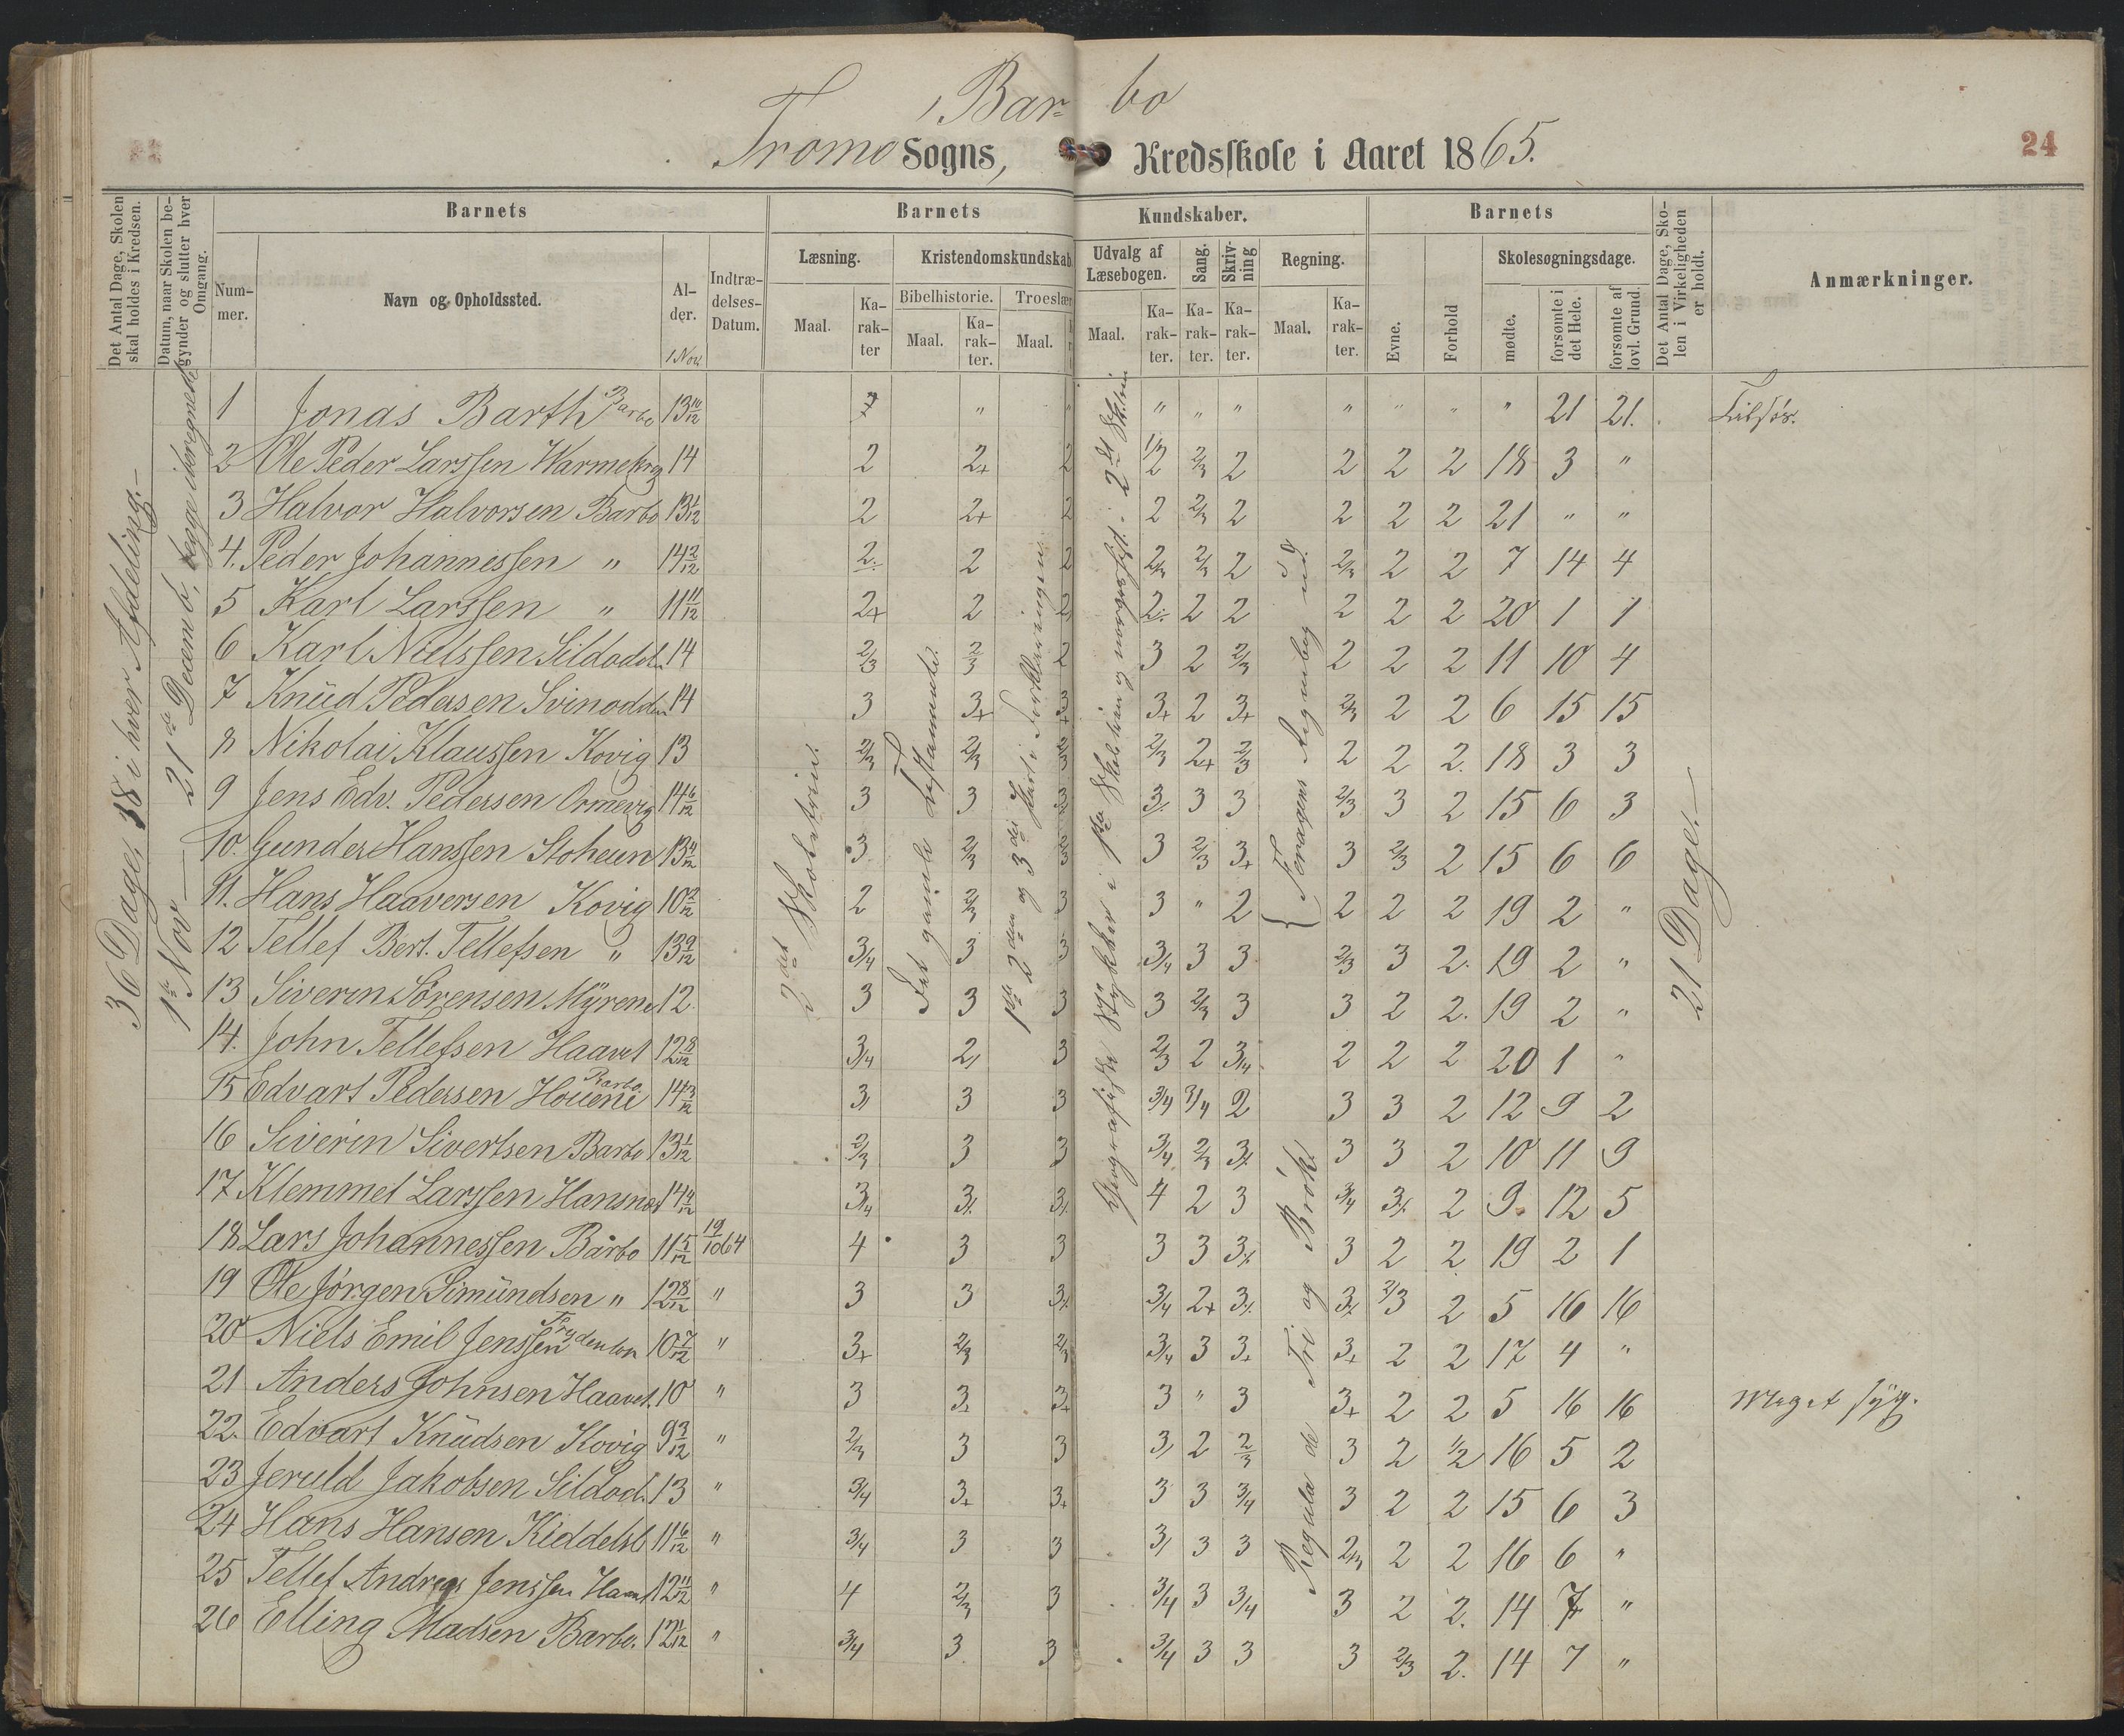 Barbo
Tromø Sogns, Kredsskole i Aaret 1865.
24
Det Antal Dage, Skolen skal holdes i Kredsen.
Datum, naar Skolen begynder og slutter hver Omgang.
Barnets
Barnets
Kundskaber.
Barnets
Det Antal Dage, Skolen i Virkeligheden er holdt.
Anmærkninger.
Nummer.
Navn og Opholdssted.
Alder.
1 Nov.
Indtrædelses-Datum.
Læsning.
Kristendomskundskab
Udvalg af Læsebogen.
Sang.
Skrivning
Regning.
Evne.
Forhold
Skolesøgningsdage.
Bibelhistorie.
Troeslær
Maal.
Karakter
Maal.
Karakter.
Maal.
Maal.
Karakter.
Karakter.
Karakter.
Maal.
Karakter.
mødte.
forsømte i det Hele.
forsømte af lovl. Grund.
36 Dage, 18 i hver Afdeling.
1ste Nov — 21de Decemb,
2det Skoletrin.
Det gamle Testamente.
1ste 2den og 3die Part i Forklaringen
Geografiske Stykker i 1ste
Regula de Tri og Brøk.
21 Dage.
1 Jonas Barth Barbo 13 10/12 " " " " " " " " " 21 21. Tilsøs.
2 Ole Peder Larssen 14 2 2+ 2 1/2 2/3 2 2 2 2 18 3 "
3 Halvor Halvorsen Barbo 13 1/12 2 2+ 2 2 2/3 2 2 2 2 21 " "
4. Peder Johannessen " 14 2/12 2 2 2 2/3 2/3 2 2/3 2 2 7 14 4
5 Karl Larssen " 11 11/12 2+ 2 2 2 2 2 2 2 2 20 1 1
6 Karl Nielssen Sildodd. 14 2/3 2/3 2 3 2 2/3 2 2 2 11 10 4
7 Knud Pedasen Svinodd 14 3 3+ 3+ 3+ 2 3+ 2/3 2 2 6 15 15
8 Nikolai Klaussen Kovig 13 2/3 2/3 2/3 2/3 2+ 2/3 2 2 2. 18 3 3
9 Jens Edv. Pedersen Ormevig 14 6/12 3 3 3 3 3 2/3 3 2 15 6 3
10. Gunder Hanssen 13 4/12 3 2/3 2/3 3 2/3 3+ 3 2/3 2 15 6 6
11. Hans Haaversen Kovig 10 2/12 2 2/3 3 3 " 2 2 2 2 19 2 "
12 Tellef Bert. Tellefsen " 13 9/12 3/4 3 3 3/4 3 3 2/3 3 2. 19 2 "
13 Siverin Sørensen Myrene 12 3 3 3 3 2/3 3 3 2 2. 19 2 "
14. John Tellefsen Haavet 12 8/12 3/4 2 3 2/3 2 3/4 2 2 2 20 1 "
15 Edvart Pedersen Barbo 14 3/12 3 3 3 3/4 3/4 2 3 3 2 12 9 2
16 Siverin Sivertsen Barbo 13 1/12 2/3 3 3 3/4 2/3 3 3 3 2 10 11 9
17 Klemmet Larssen Hansnæs 14 4/12 3/4 3 3 4 2 3 3/4 3 2 9. 12 5
18 Lars Johannessen Barbo 11 5/12 19/10 64 4 3 3 3 3 3 3 2 2 19 2 1
19 Ole Jørgen Simundsen " 12 8/12 " 3 3 3 3/4 2+ 3 3 2/3 2 5 16 16
20 Niels Emil Jenssen 10 7/12 " 3+ 2/3 2/3 3/4 3 3+ 3+ 2 2 17 4 "
21 Anders Johnsen Haavet. 10 " 3 3+ 3+ 3 " 3 3+ 2 2 5 16 16 Meget syg.
22. Edvart Knudsen Kovig 9 3/12 " 2/3 3 3 3 2 2/3 3 2 1/2 16 5 2
23 Jeruld Jakobsen Sildod. 13 " 3/4 3+ 3+ 3 3 3/4 3 2 2 15 6 3
24 Hans Hansen Kiddelsb 11 6/12 " 3/4 3 3 3 3 3 2/3 2 2 16 6 "
25 Tellef Andreas Jenssen Haavet 12 11/12 " 4 2/3 3 3/4 3 3/4 3 2 2. 14 7 "
26 Elling Madsen Barbo. 12 1/12 " 3/4 3 3 3/4 3 3 3 2/3 2. 14 7 "